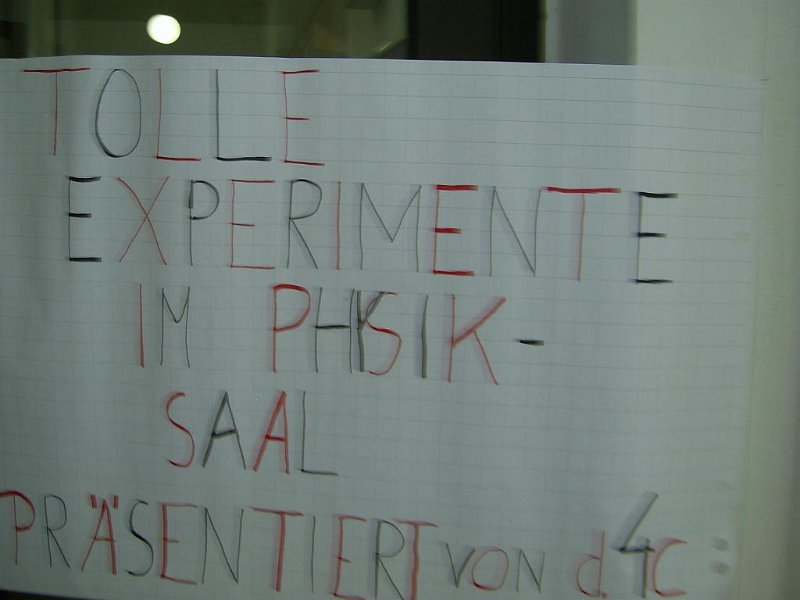 TOLLE
EXPERIMENTE
IM PHYSIK-
SAAL
PRÄSENTIERT VON d. 4C :